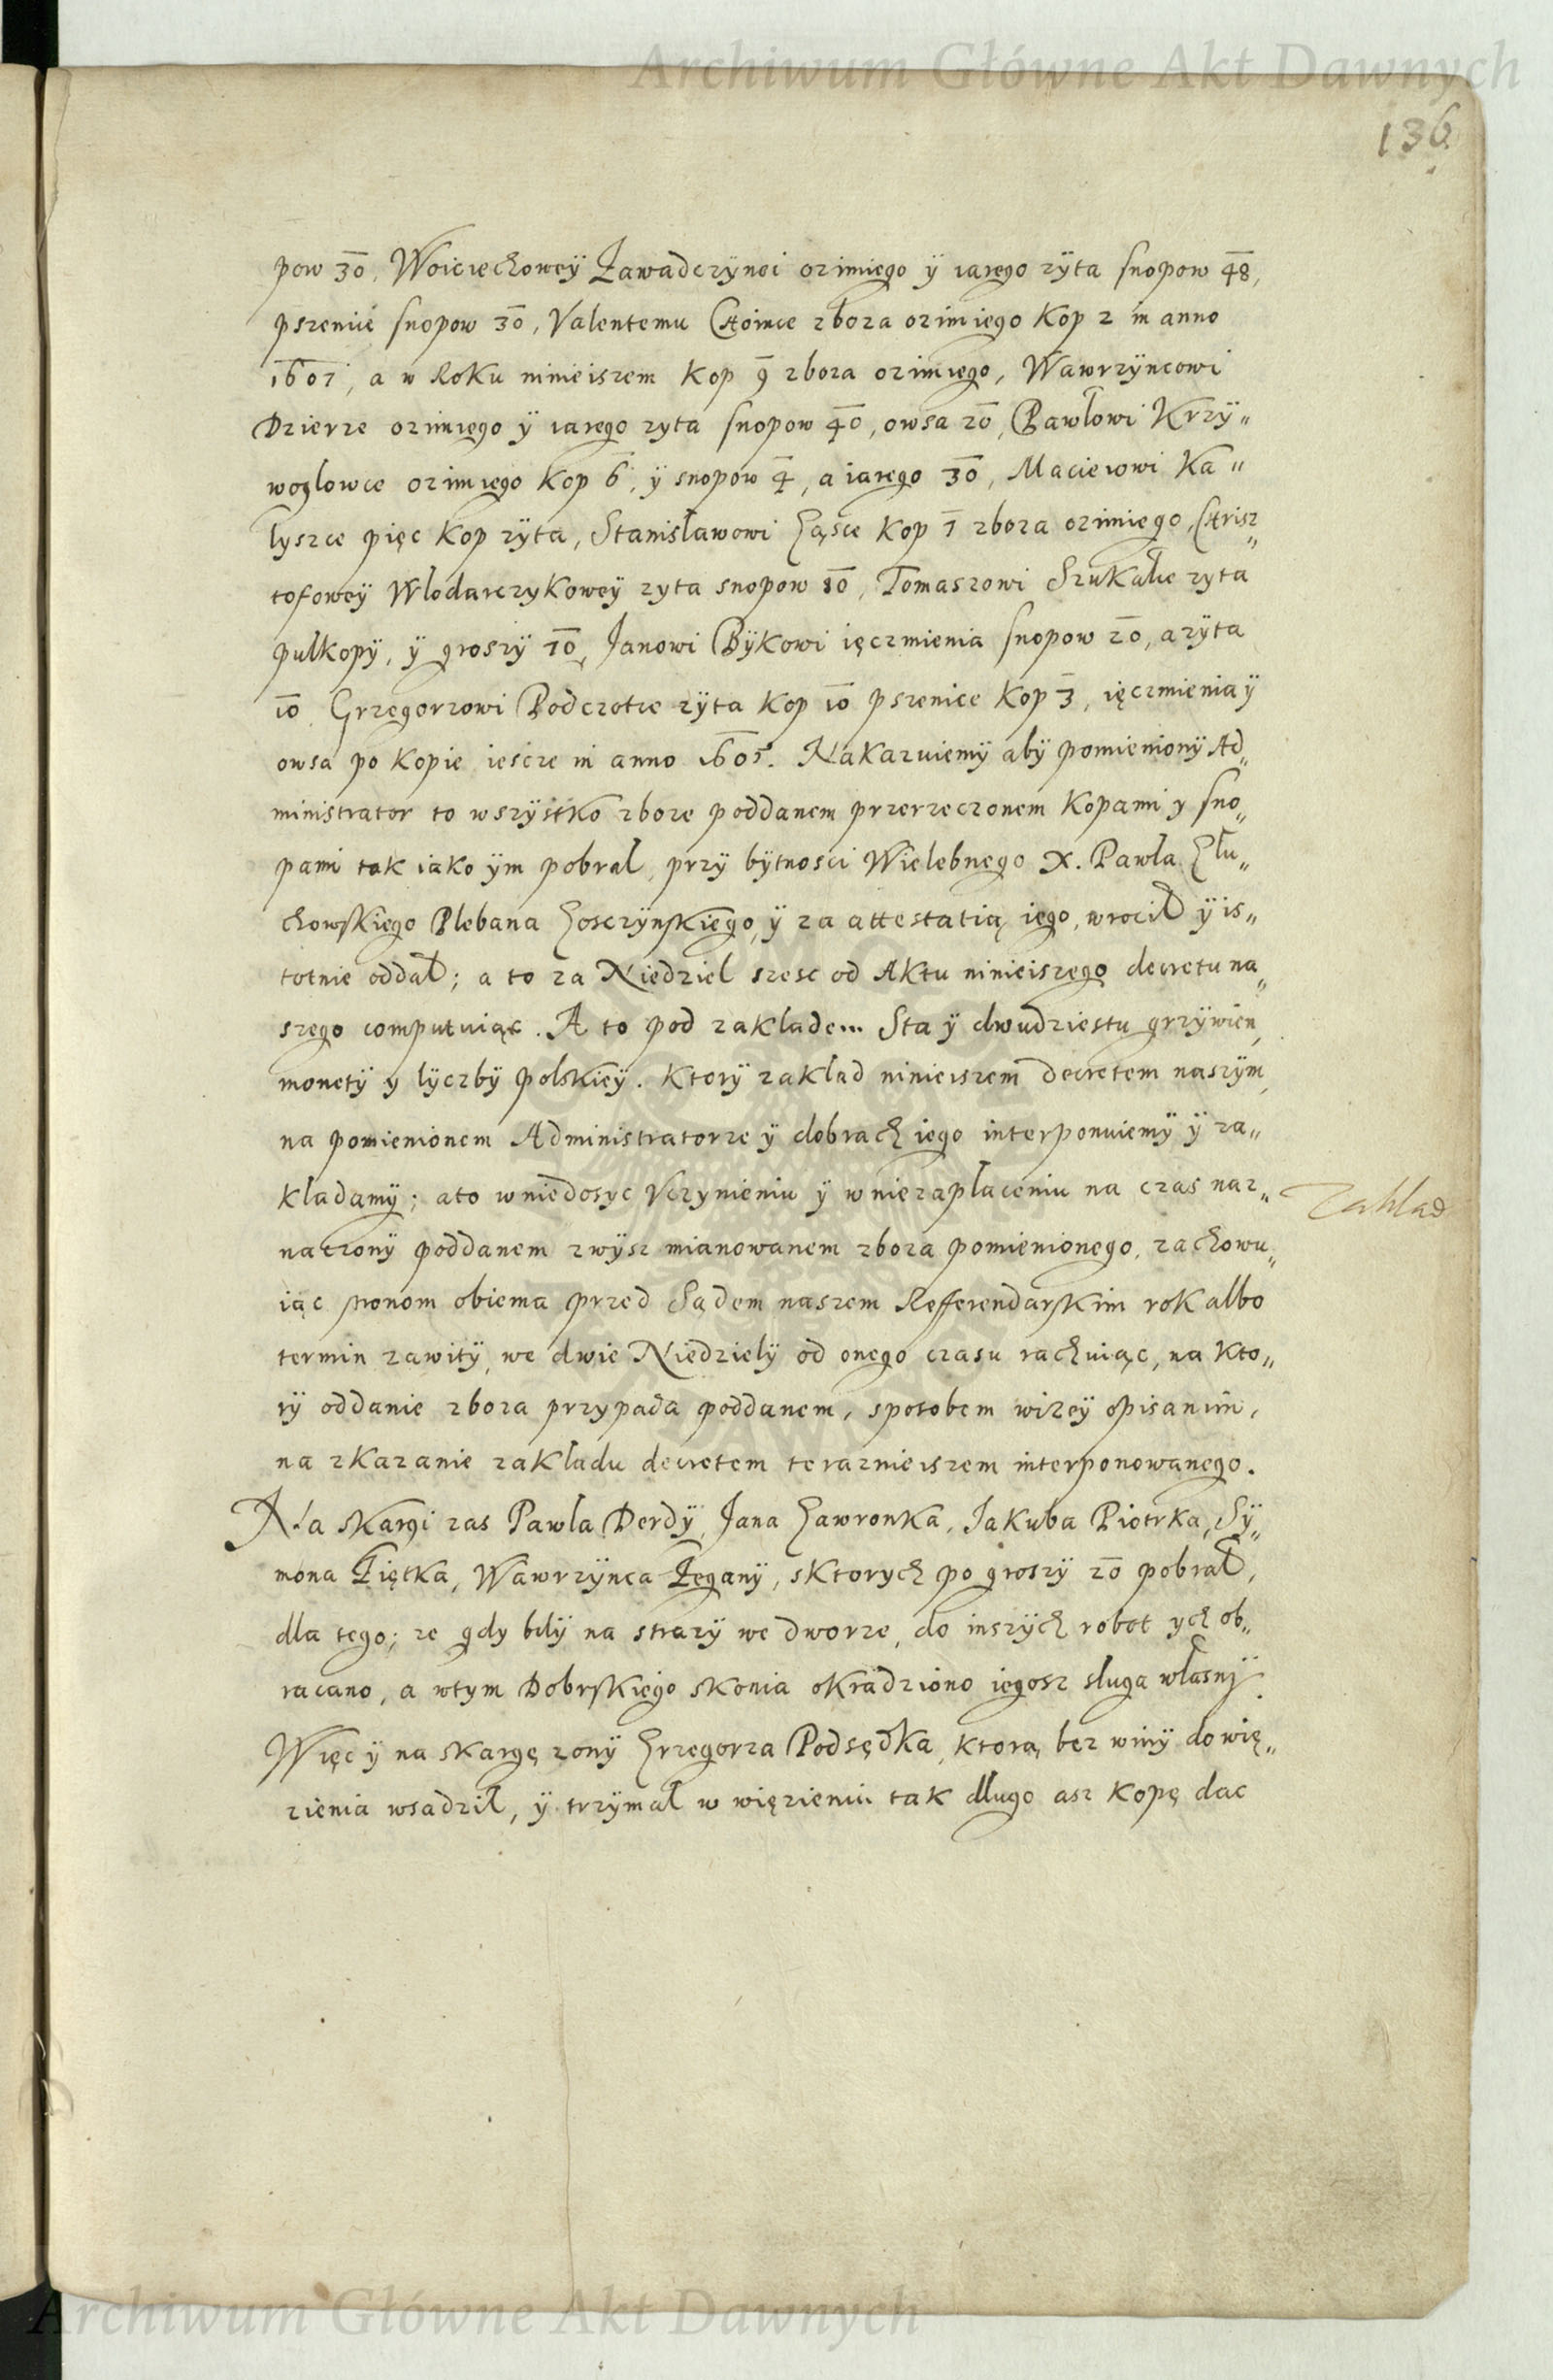 Archiwum Główne Akt Dawnych
136
pow 30, Woiciechoweÿ Zawadczÿnei ozimiego ÿ iarego zÿta snopow 48,
pszenice snopow 30, Valentemu zboza ozimiego kop 2 in anno
1607, a w Roku ninieiszem kop 9 zboza ozimiego, Wawrzÿncowi
Dzierze ozimiego ÿ iarego zyta snopow 40, owsa 20, Pawłowi Krzÿ„
woglowce ozimiego kop 6, ÿ snopow 4, a iarego 30, Macieiowi Ka„
lyszce pięc kop zÿta, Stanisławowi Gąsce kop 1 zboza ozimiego, Chrisz„
tofoweÿ Wlodarczykoweÿ zyta snopow 80, Tomaszowi Szukalie zyta
pulkopÿ, ÿ groszÿ 10, Janowi Bÿkowi ięczmienia snopow 20, a zÿta
10 Grzegorzowi Podczotze zÿta kop 10 pszenice kop 3, ięczmienia ÿ
owsa po kopie iescze in anno 1605. Nakazuiemÿ abÿ pomienionÿ Ad„
ministrator to wszÿstko zboze poddanem przerzeczonem kopami y sno„
pami tak iako ÿm pobral, przy bÿtnosci Wielebnego X. Pawla Głu„
chowskiego Plebana Goszczÿnskiego, ÿ za attestatią iego, wrocił ÿ is„
totnie oddał; a to za Niedziel szesc od Aktu ninieiszego decretu na„
szego computuiąc. A to pod zaklade... Sta ÿ dwudziestu grzÿwien,
monetÿ y lyczbÿ polskieÿ. Ktorÿ zaklad ninieiszem decretem naszÿm,
na pomienionem Administratorze ÿ dobrach iego interponuiemÿ ÿ za„
kladamÿ; a to w niedosyc Vczynieniu ÿ w niezaplaceniu na czas naz„
naczonÿ poddanem zwÿsz mianowanem zboza pomienionego, zachowu„
iąc stronom obiema przed Sądem naszem Refferendarskim rok albo
termin zawitÿ, we dwie Niedzielÿ od onego czasu rachuiąc, na kto„
rÿ oddanie zboza przypada poddanem, sposobem wizeÿ opisanim,
na zkazanie zakładu decretem teraznieiszem interponowanego.
zaklad
Na skargi zas Pawla Derdÿ, Jana Gawronka, Jakuba Piotrka, Sÿ„
mona Ziętka, Wawrzÿnca Zeganÿ, sktorych po groszÿ 20 pobrał,
dla tego; ze gdy bilÿ na strazÿ we dworze, do inszÿch robot ych ob„
racano, a wtym Dobrskiego skonia okradziono iegosz sługa własnÿ.
Więc ÿ na skargę zonÿ Grzegorza Podsędka, ktorą bez winÿ do wię„
zienia wsadzil, ÿ trzÿmał w więzieniu tak dlugo asz kopę dac
Archiwum Główne Akt Dawnych